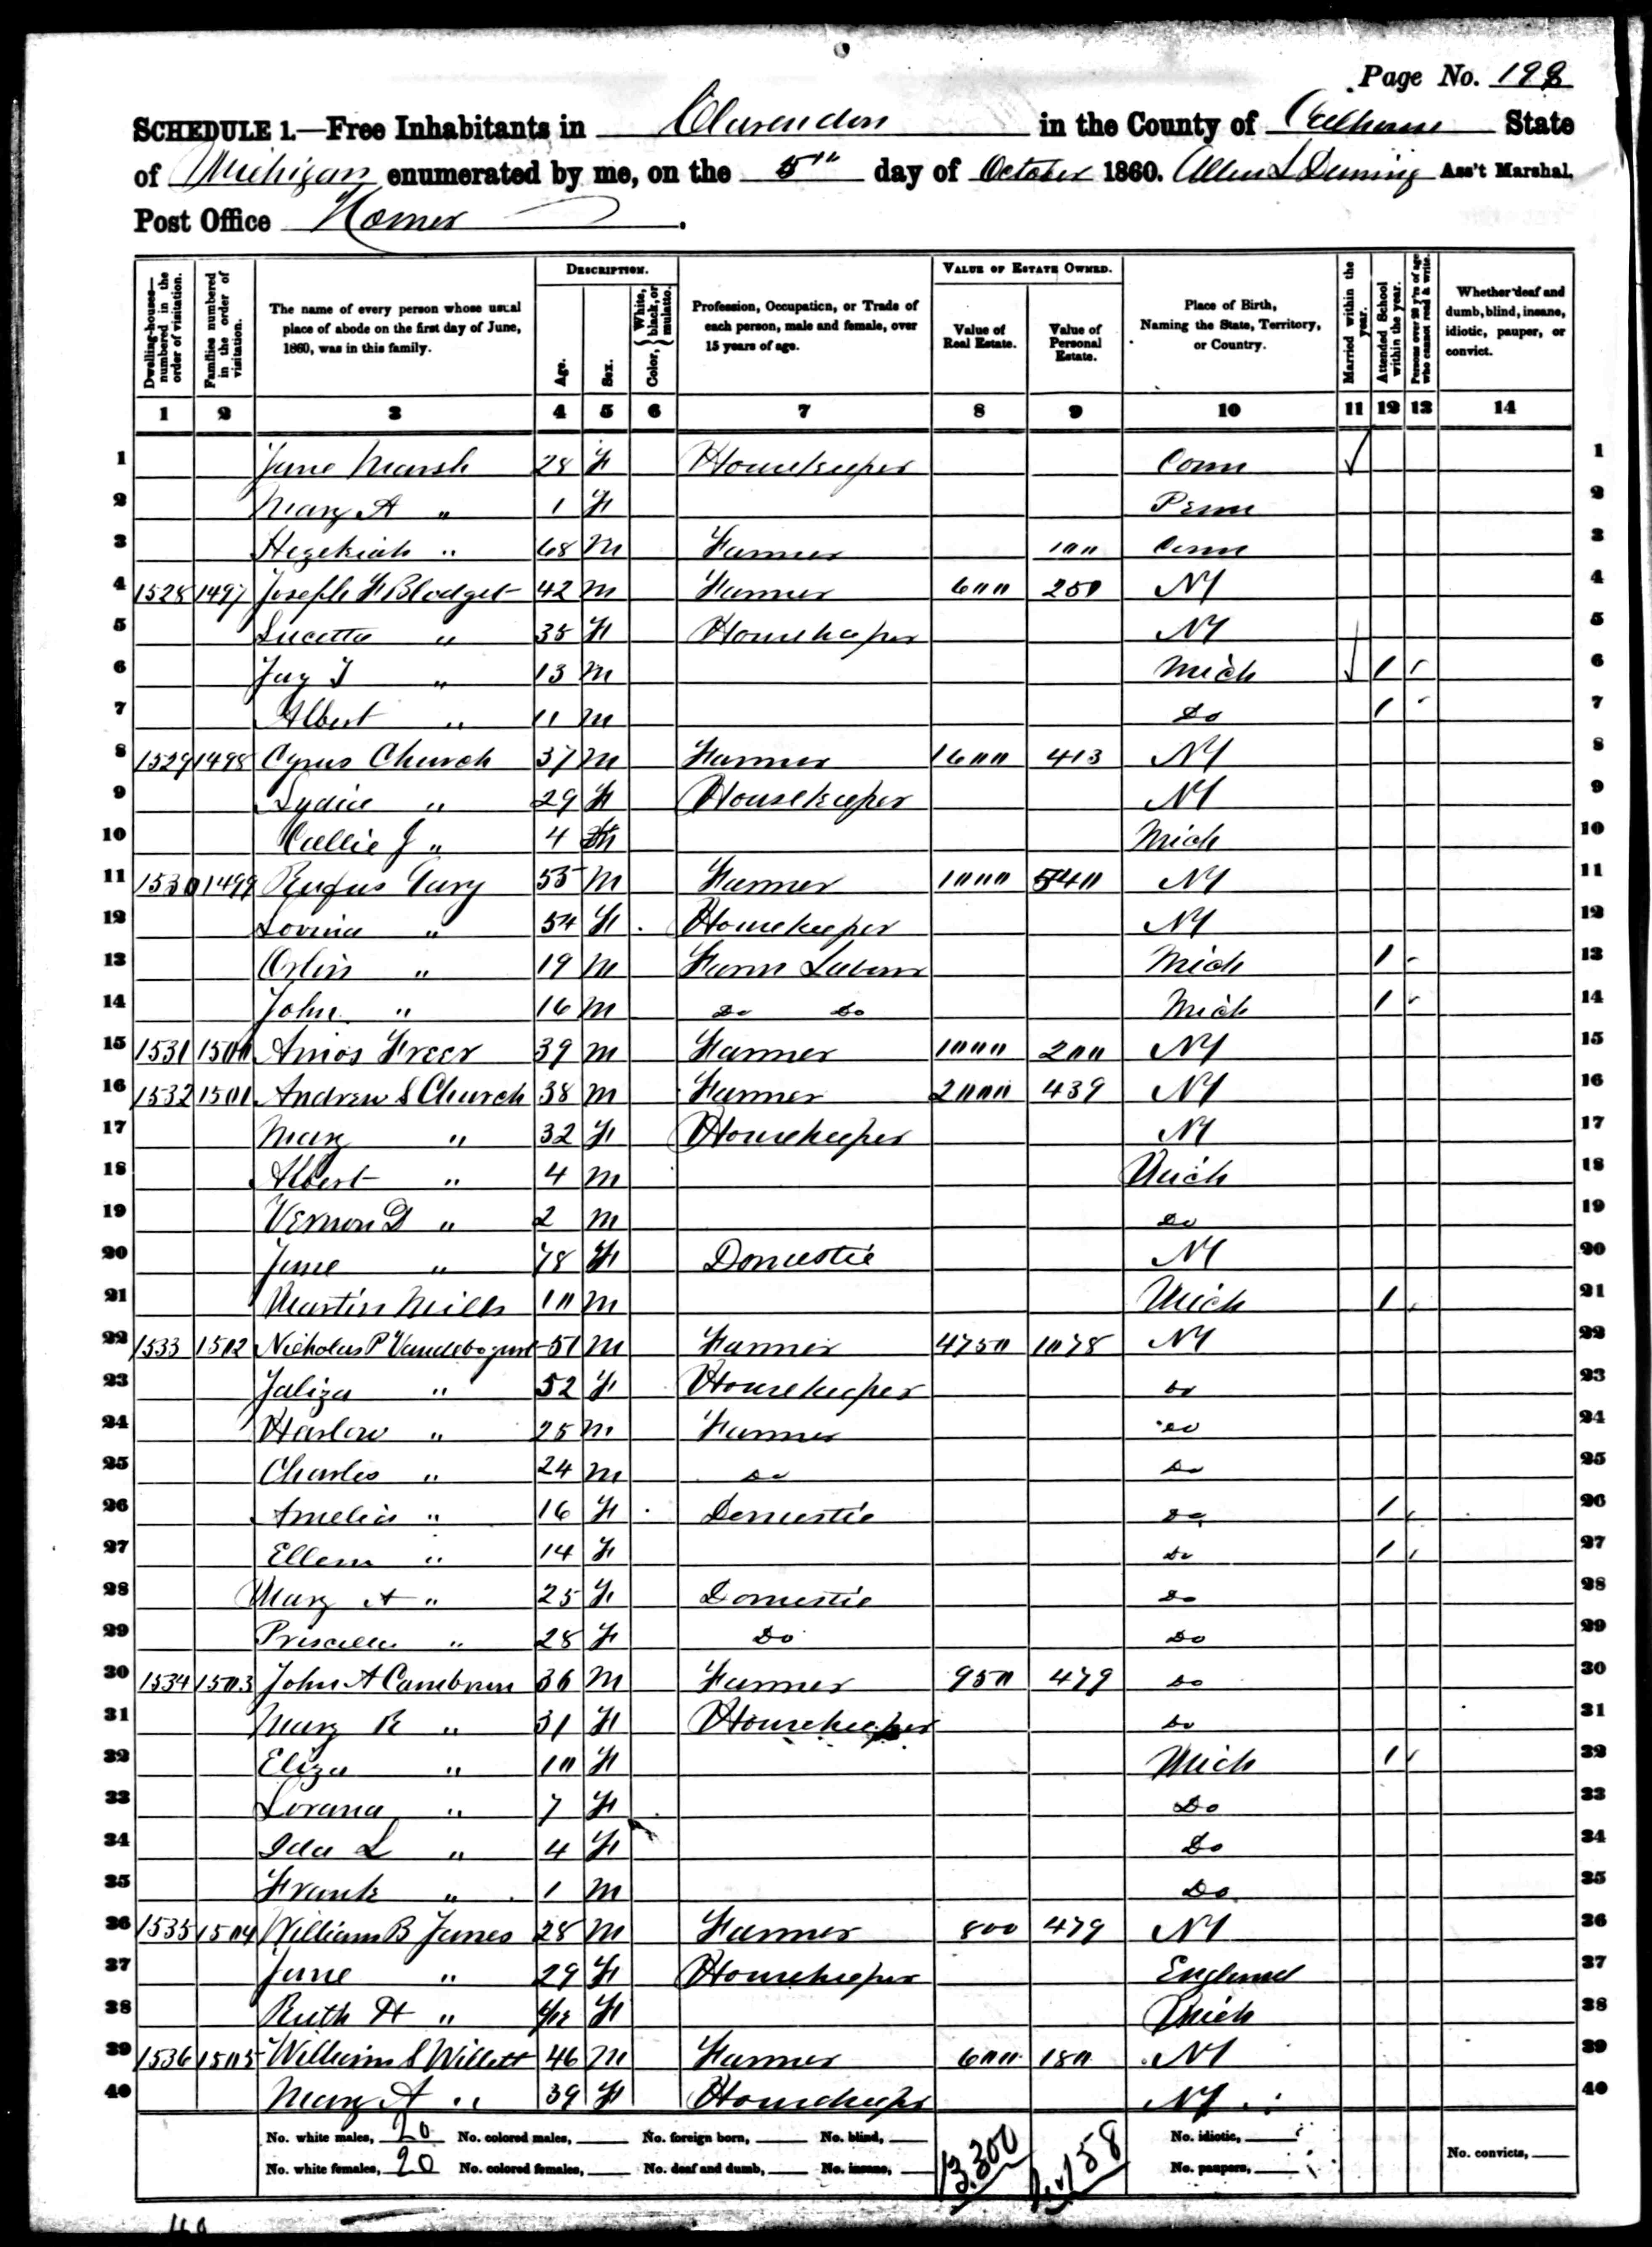 Page No. 198
SCHEDULE 1.—Free Inhabitants in Clarendon in the County of Calhoun State
of Michigan enumerated by me, on the 5th day of October 1860. Allen S Deming Ass't Marshal.
Post Office Homer.
Dwelling-houses—numbered in the order of visitation.
Families numbered in the order of visitation.
The name of every person whose usual place of abode on the first day of June, 1860, was in this family.
DESCRIPTION.
Age.
Sex.
Color, { White, black, or mulatto.
Profession, Occupation, or Trade of each person, male and female, over 15 years of age.
VALUE OF ESTATE OWNED.
Value of Real Estate.
Value of Personal Estate.
Place of Birth, Naming the State, Territory, or Country.
Married within the year.
Attended School within the year.
Persons over 20 y'rs of age who cannot read & write.
Whether deaf and dumb, blind, insane, idiotic, pauper, or convict.
1 2 3 4 5 6 7 8 9 10 11 12 13 14
1 Jane Marsh 28 F Housekeeper Conn 1
2 Mary A " 1 F Penn 2
3 Hezekiah " 68 M Farmer 100 Conn 3
4 1528 1497 Joseph F Blodget 42 M Farmer 600 250 NY 4
5 Lucetta " 35 F Housekeeper NY 5
6 Jay T " 13 M Mich 1 6
7 Albert " 11 M Do 1 7
8 1529 1498 Cyrus Church 37 M Farmer 1600 413 NY 8
9 Lydia " 29 F Housekeeper NY 9
10 Callie J " 4 Mich 10
11 1530 1499 Rufus Gary 55 M Farmer 1000 540 NY 11
12 Lovina " 54 F Housekeeper NY 12
13 Orlin " 19 M Farm Labour Mich 1 13
14 John " 16 M Do Do Mich 1 14
15 1531 1500 Amos Freer 39 M Farmer 1000 200 NY 15
16 1532 1501 Andrew S Church 38 M Farmer 2000 439 NY 16
17 Mary " 32 F Housekeeper NY 17
18 Albert " 4 M Mich 18
19 Vernon D " 2 M Do 19
20 Jane " 78 F Domestic NY 20
21 Martin Mills 10 M Mich 1 21
22 1533 1502 Nicholas P Vandebogurt 51 M Farmer 4750 1078 NY 22
23 Jaliza " 52 F Housekeeper Do 23
24 Harlow " 25 M Farmer Do 24
25 Charles " 24 M Do Do 25
26 Amelia " 16 F Domestic Do 1 26
27 Ellen " 14 F Do 1 27
28 Mary A " 25 F Domestic Do 28
29 Priscilla " 28 F Do Do 29
30 1534 1503 John A Cambrun 36 M Farmer 950 479 Do 30
31 Mary R " 31 F Housekeeper Do 31
32 Eliza " 10 F Mich 1 32
33 Lorana " 7 F Do 33
34 Ida L " 4 F Do 34
35 Frank " 1 M Do 35
36 1535 1504 William B Jones 28 M Farmer 800 479 NY 36
37 Jane " 29 F Housekeeper England 37
38 Ruth H " F Mich 38
39 1536 1505 William S Willett 46 M Farmer 600 180 NY 39
40 Mary A " 39 F Housekeeper NY 40
No. white males, 20 No. colored males, No. foreign born, No. blind, 13,300 No. idiotic,
No. white females, 20 No. colored females, No. deaf and dumb, No. insane, No. paupers, No. convicts,